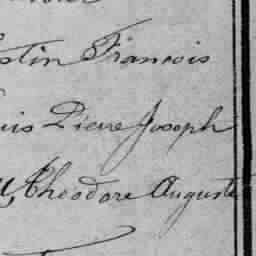 stin François
uis Pierre Joseph
Théodore Auguste